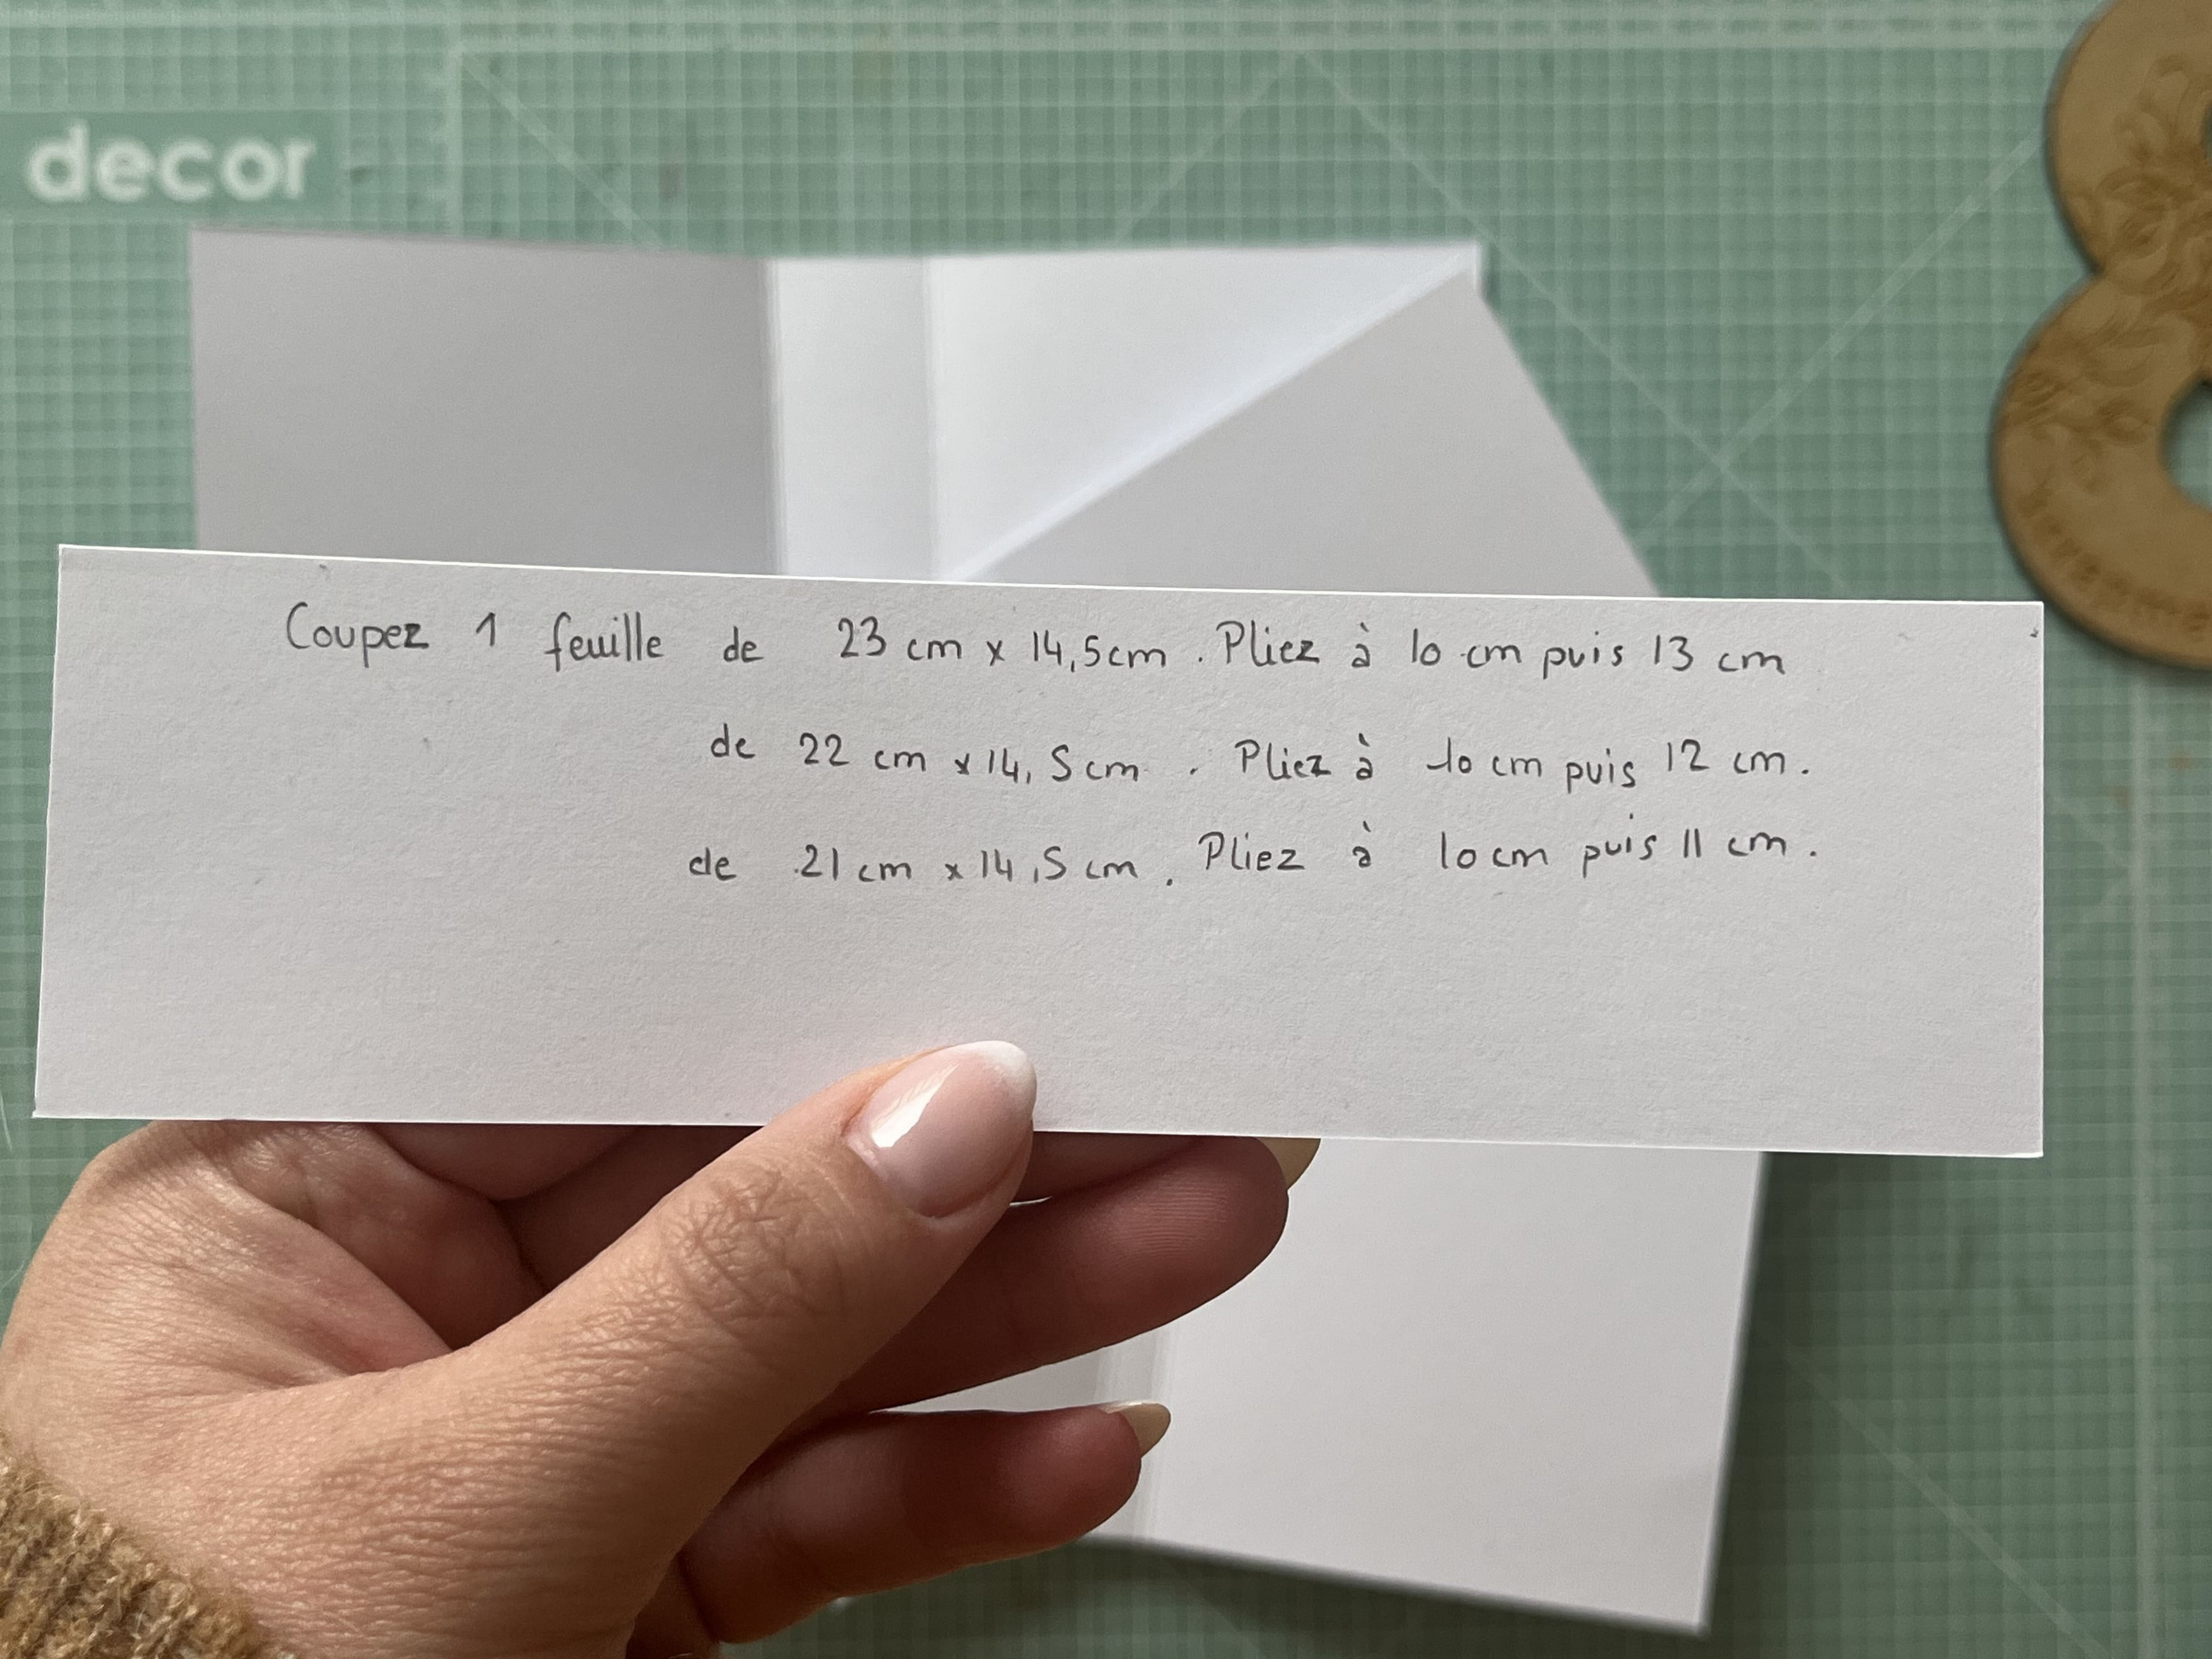 decor
Coupez 1 feuille de 23 cm x 14,5cm. Pliez à 10 cm puis 13 cm
de 22 cm x 14,5cm. Pliez à 10 cm puis 12 cm.
de 21 cm x 14,5 cm. Pliez à 10 cm puis 11 cm.